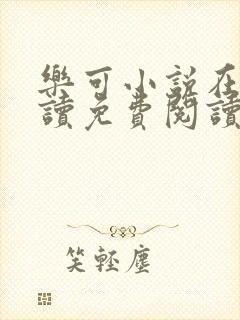 樂可小說在
讀免費閱讀
笑輕塵